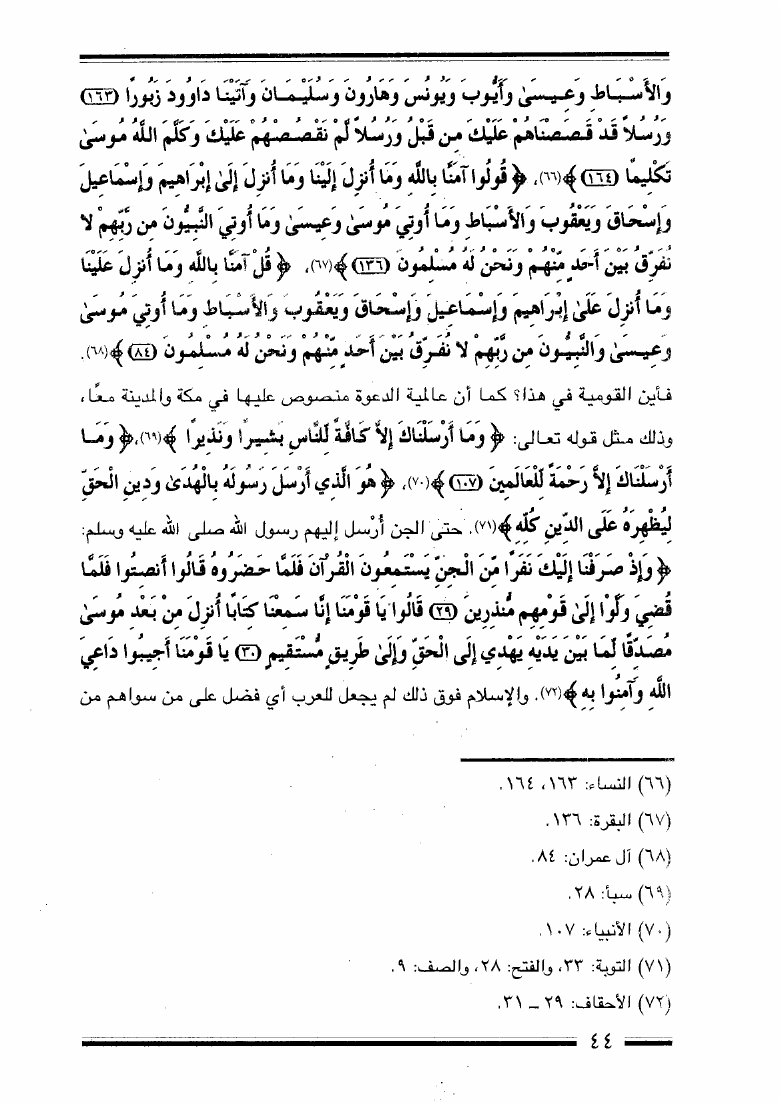 وَالأَسْبَاطِ وَعِيسَىٰ وَأَيُّوبَ وَيُونُسَ وَهَارُونَ وَسُلَيْمَانَ وَآتَيْنَا دَاوُودَ زَبُورًا (١٦٣)
وَرُسُلاً قَدْ قَصَصْنَاهُمْ عَلَيْكَ مِن قَبْلُ وَرُسُلاً لَّمْ نَقْصُصْهُمْ عَلَيْكَ وَكَلَّمَ اللَّهُ مُوسَىٰ
تَكْلِيمًا (١٦٤)﴾(٦٦)، ﴿قُولُوا آمَنَّا بِاللَّهِ وَمَا أُنزِلَ إِلَيْنَا وَمَا أُنزِلَ إِلَىٰ إِبْرَاهِيمَ وَإِسْمَاعِيلَ
وَإِسْحَاقَ وَيَعْقُوبَ وَالأَسْبَاطِ وَمَا أُوتِيَ مُوسَىٰ وَعِيسَىٰ وَمَا أُوتِيَ النَّبِيُّونَ مِن رَّبِّهِمْ لا
نُفَرِّقُ بَيْنَ أَحَدٍ مِّنْهُمْ وَنَحْنُ لَهُ مُسْلِمُونَ (١٣٦)﴾(٦٧)، ﴿قُلْ آمَنَّا بِاللَّهِ وَمَا أُنزِلَ عَلَيْنَا
وَمَا أُنزِلَ عَلَىٰ إِبْرَاهِيمَ وَإِسْمَاعِيلَ وَإِسْحَاقَ وَيَعْقُوبَ وَالأَسْبَاطِ وَمَا أُوتِيَ مُوسَىٰ
وَعِيسَىٰ وَالنَّبِيُّونَ مِن رَّبِّهِمْ لا نُفَرِّقُ بَيْنَ أَحَدٍ مِّنْهُمْ وَنَحْنُ لَهُ مُسْلِمُونَ (٨٤)﴾(٦٨).
فأين القومية في هذا؟ كما أن عالمية الدعوة منصوص عليها في مكة والمدينة معًا،
وذلك مثل قوله تعالى: ﴿وَمَا أَرْسَلْنَاكَ إِلاَّ كَافَّةً لِّلنَّاسِ بَشِيرًا وَنَذِيرًا﴾(٦٩)، ﴿وَمَا
أَرْسَلْنَاكَ إِلاَّ رَحْمَةً لِّلْعَالَمِينَ (١٠٧)﴾(٧٠)، ﴿هُوَ الَّذِي أَرْسَلَ رَسُولَهُ بِالْهُدَىٰ وَدِينِ الْحَقِّ
لِيُظْهِرَهُ عَلَى الدِّينِ كُلِّهِ﴾(٧١). حتى الجن أُرْسل إليهم رسول الله صلى الله عليه وسلم:
﴿وَإِذْ صَرَفْنَا إِلَيْكَ نَفَرًا مِّنَ الْجِنِّ يَسْتَمِعُونَ الْقُرْآنَ فَلَمَّا حَضَرُوهُ قَالُوا أَنصِتُوا فَلَمَّا
قُضِيَ وَلَّوْا إِلَىٰ قَوْمِهِم مُّنذِرِينَ (٢٩) قَالُوا يَا قَوْمَنَا إِنَّا سَمِعْنَا كِتَابًا أُنزِلَ مِنْ بَعْدِ مُوسَىٰ
مُصَدِّقًا لِّمَا بَيْنَ يَدَيْهِ يَهْدِي إِلَى الْحَقِّ وَإِلَىٰ طَرِيقٍ مُّسْتَقِيمٍ (٣٠) يَا قَوْمَنَا أَجِيبُوا دَاعِيَ
اللَّهِ وَآمِنُوا بِهِ﴾(٧٢). والإسلام فوق ذلك لم يجعل للعرب أي فضل على من سواهم من
(٦٦) النساء: ١٦٣، ١٦٤.
(٦٧) البقرة: ١٣٦.
(٦٨) آل عمران: ٨٤.
(٦٩) سبأ: ٢٨.
(٧٠) الأنبياء: ١٠٧.
(٧١) التوبة: ٣٣، والفتح: ٢٨، والصف: ٩.
(٧٢) الأحقاف: ٢٩ – ٣١.
٤٤